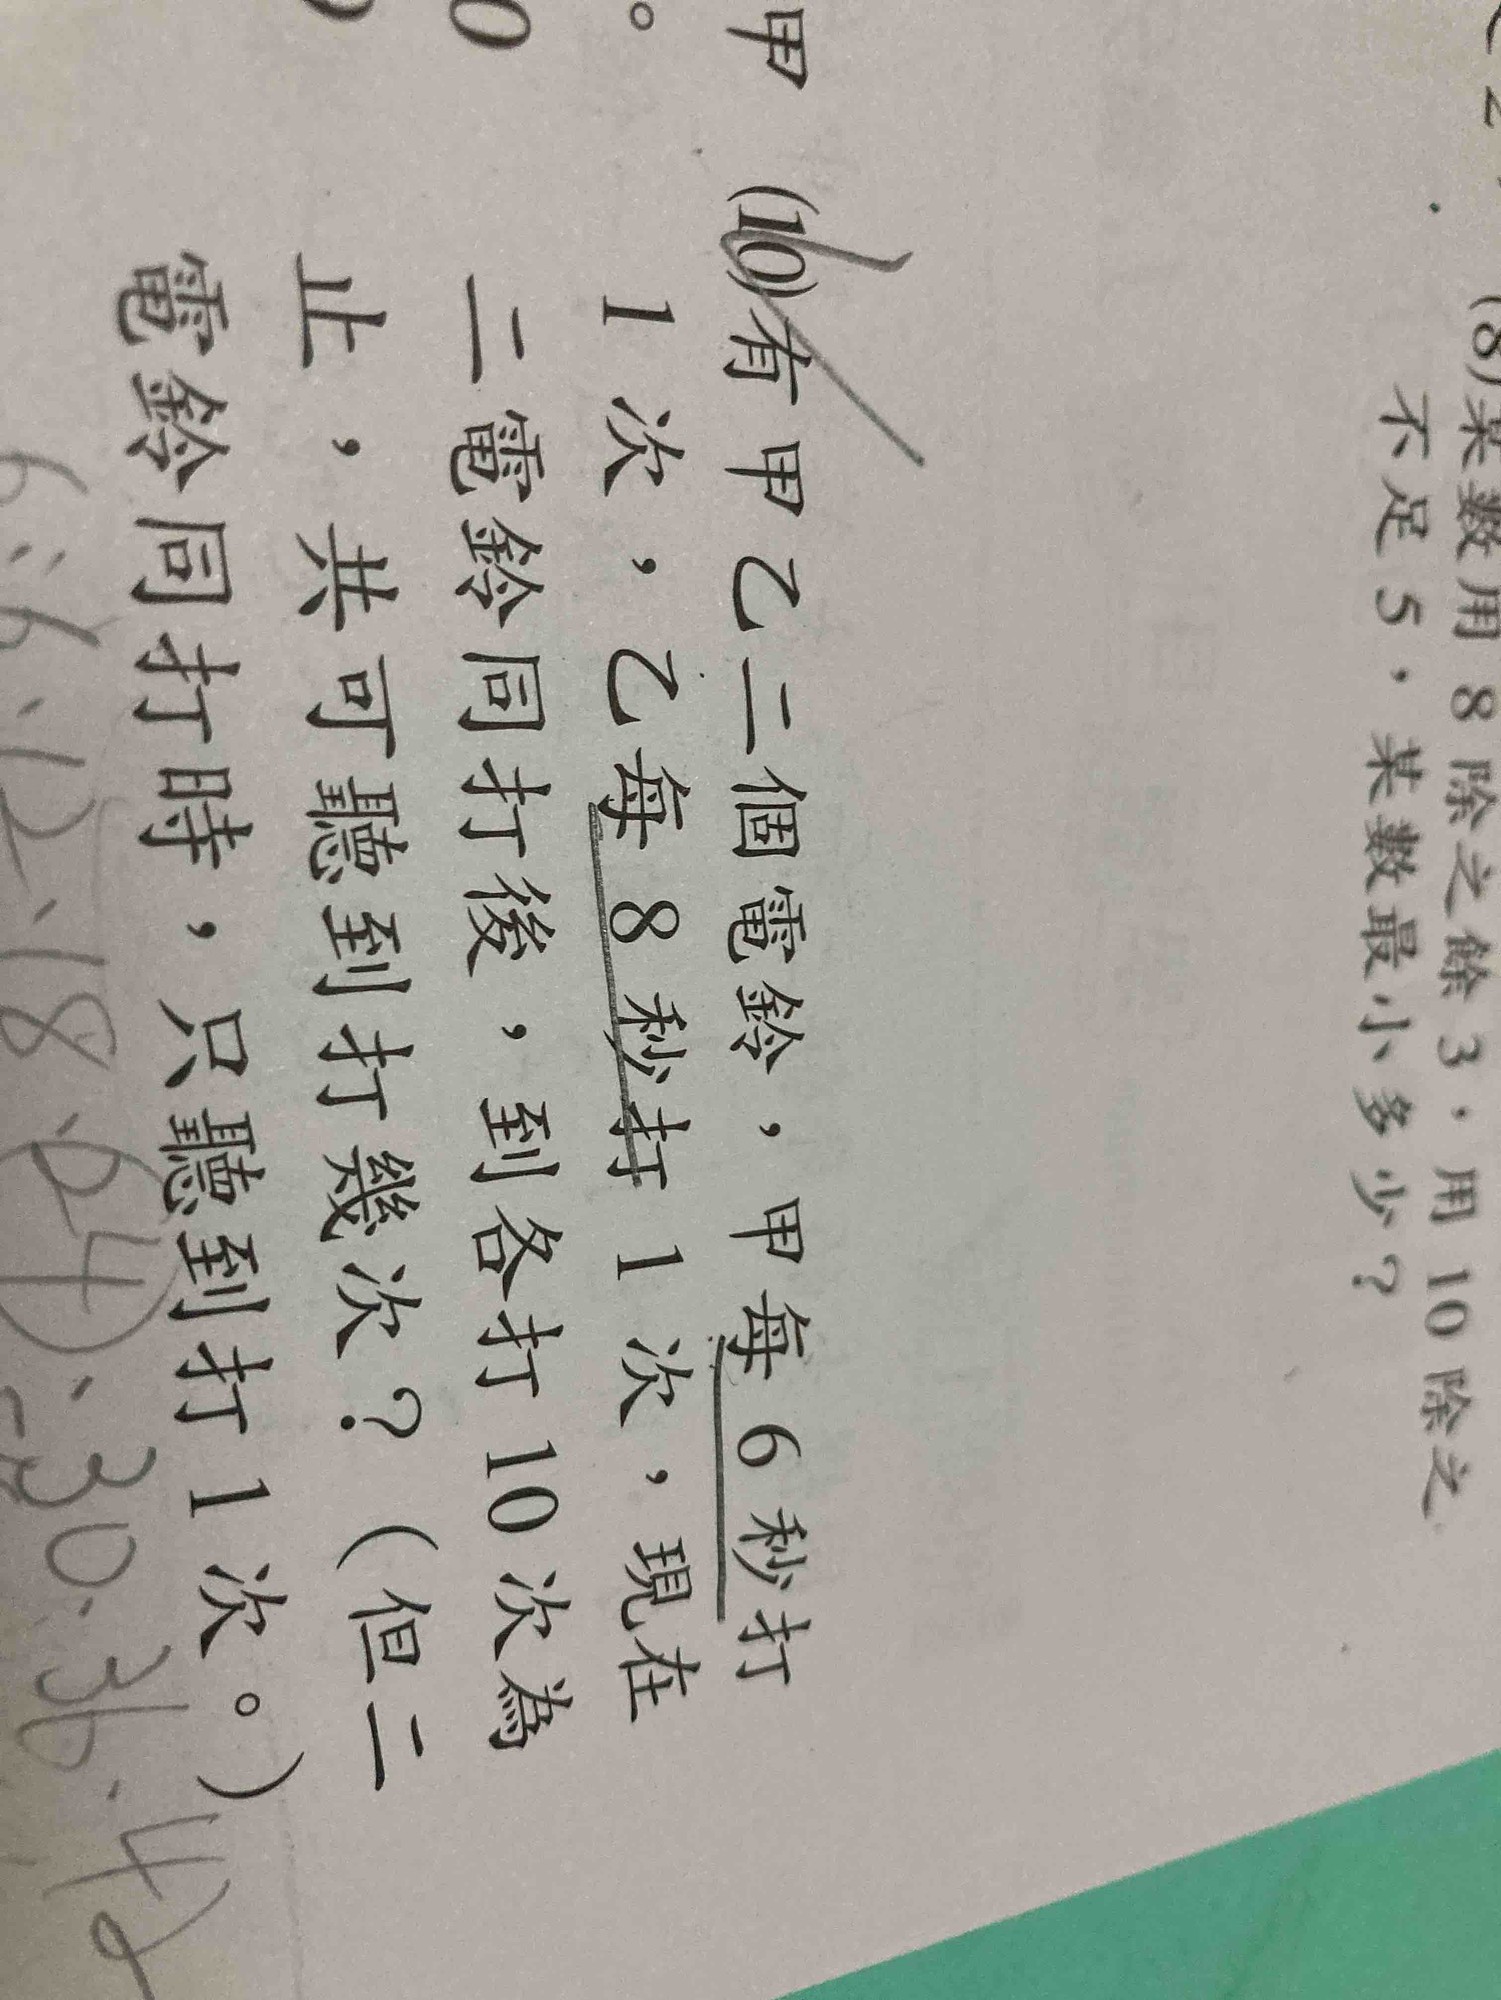 (8)某數用 8 除之餘 3,用 10 除之
不足 5,某數最小多少?
甲
(10)有甲乙二個電鈴,甲每 6 秒打
1 次,乙每 8 秒打 1 次,現在
二電鈴同打後,到各打 10 次為
止,共可聽到打幾次?(但二
電鈴同打時,只聽到打 1 次。)
6:6、12、18、24、30、36、42